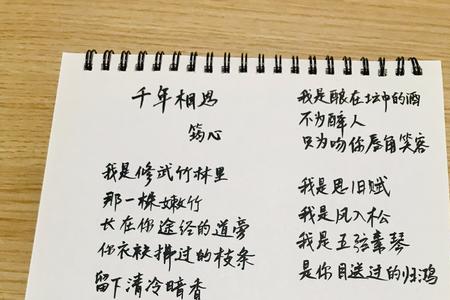 千年相思
筠心
我是修武竹林里
那一棵嫩竹
长在你途经的道旁
你衣袂拂过的枝条
留下清冷暗香
我是酿在坛中的酒
不为醉人
只为吻你唇角笑容
我是思旧赋
我是风入松
我是五弦素琴
是你目送过的归鸿